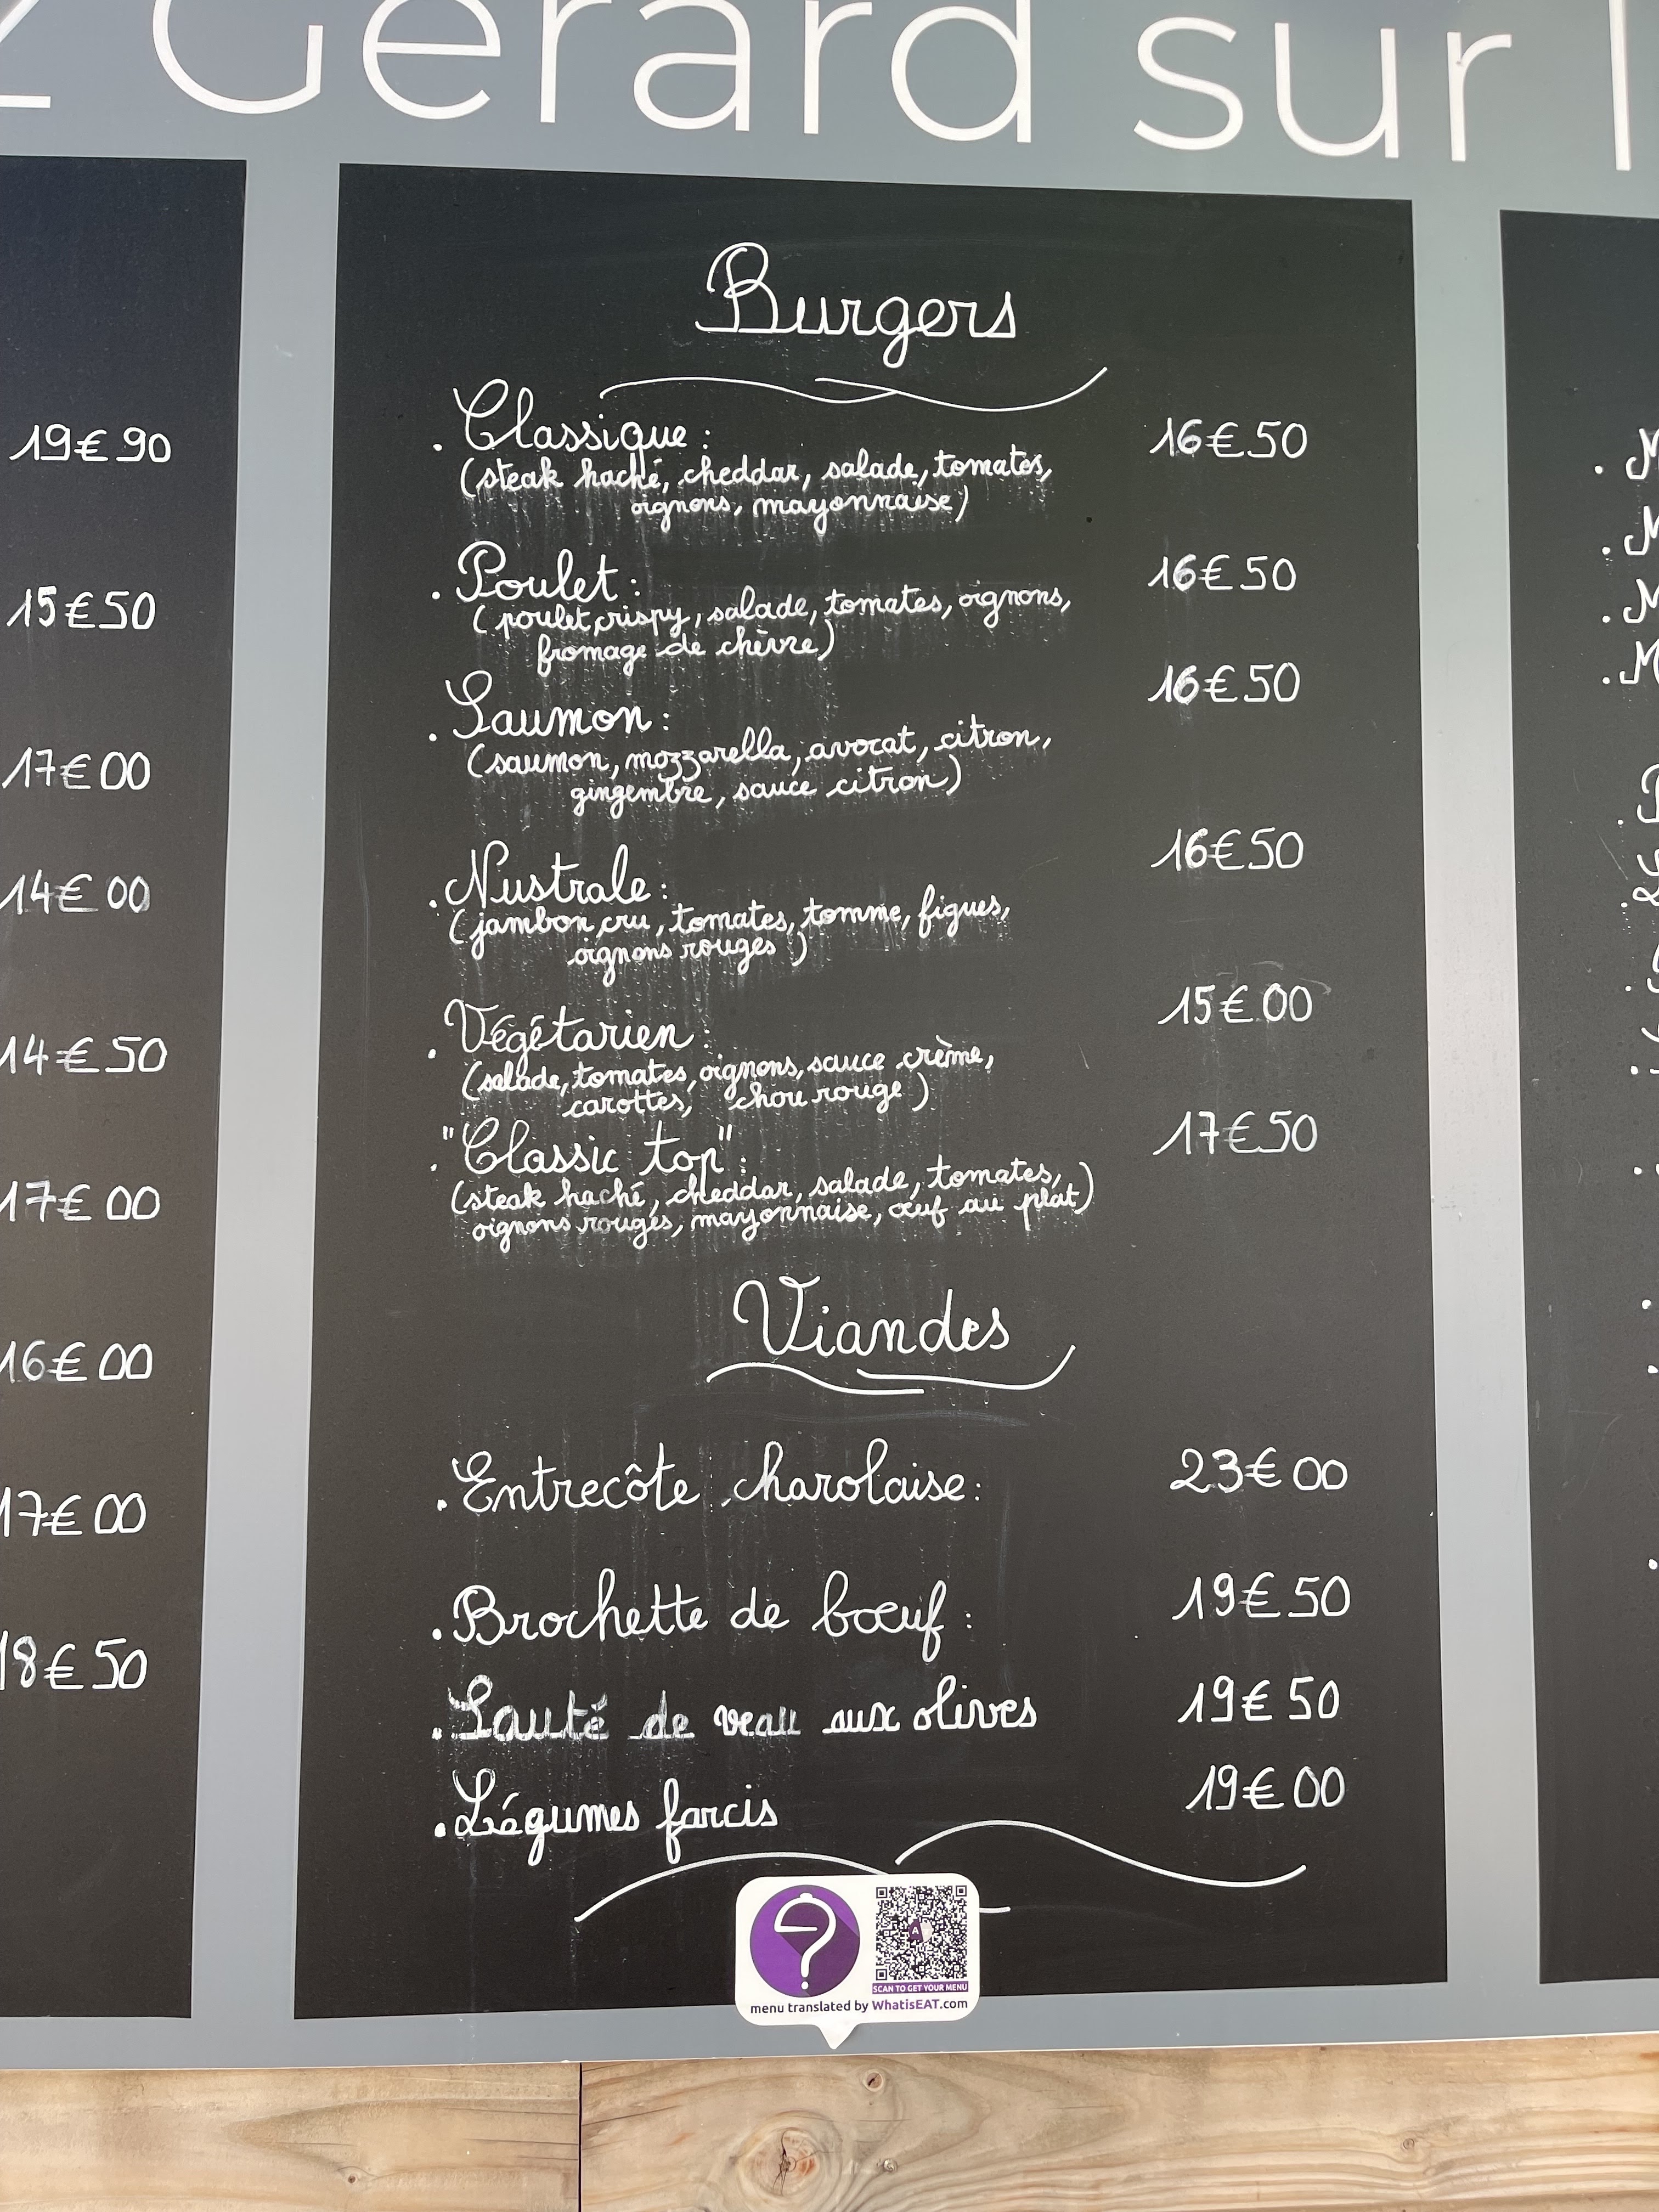 Gérard sur
19€90
15€50
17€00
14€00
14€50
17€00
16€00
17€00
18€50
Burgers
. Classique : 16€50
(steak haché, cheddar, salade, tomates,
oignons, mayonnaise)
. Poulet : 16€50
(poulet crispy, salade, tomates, oignons,
fromage de chèvre)
. Saumon : 16€50
(saumon, mozzarella, avocat, citron,
gingembre, sauce citron)
. Nustrale : 16€50
(jambon cru, tomates, tomme, figues,
oignons rouges)
. Végétarien : 15€00
(salade, tomates, oignons, sauce crème,
carottes, chou rouge)
. "Classic top" : 17€50
(steak haché, cheddar, salade, tomates,
oignons rouges, mayonnaise, œuf au plat)
Viandes
. Entrecôte charolaise : 23€00
. Brochette de bœuf : 19€50
. Sauté de veau aux olives 19€50
. Légumes farcis 19€00
SCAN TO GET YOUR MENU
menu translated by WhatisEAT.com